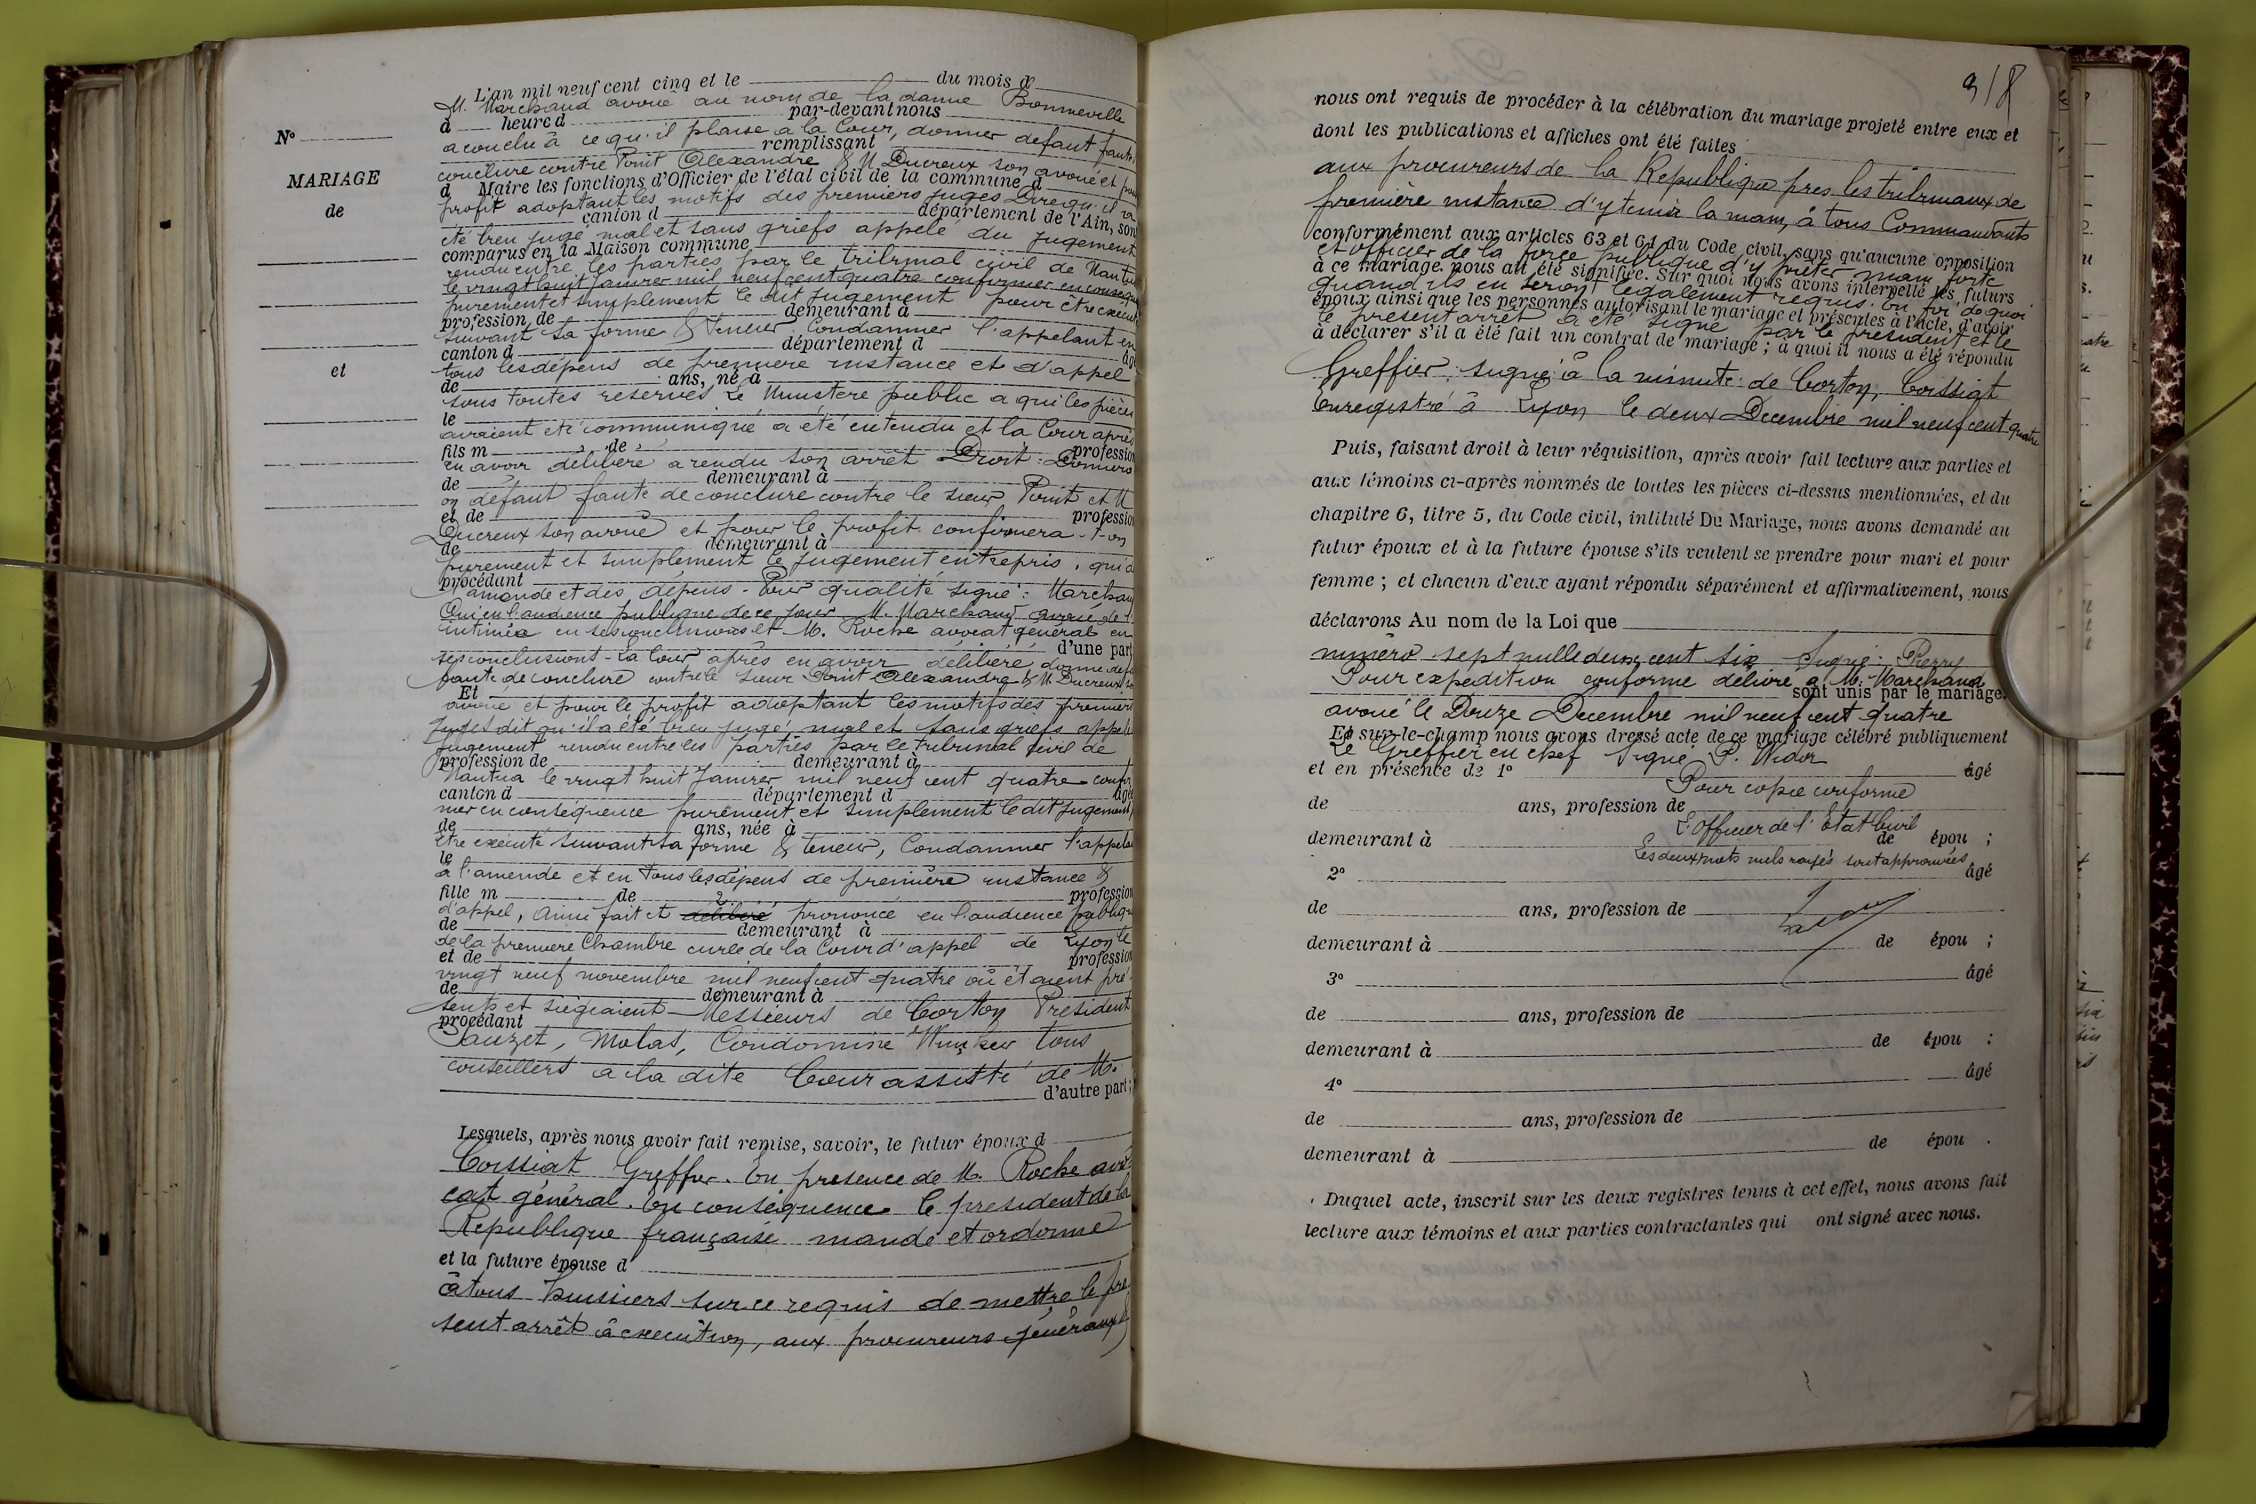 L'an mil neuf cent cinq et le du mois d
M. Marchand avoué au nom de la dame Bonneville
à heure d par-devant nous
a conclu à ce qu'il plaise à la Cour, donner défaut faute
remplissant
conclure contre Point Alexandre & M Ducreux son avoué et pour
d Maire les fonctions d'Officier de l'état civil de la commune d
profit adoptant les motifs des premiers juges Dire qu'il a
canton d département de l'Ain, sont
été bien jugé mal et sans griefs appelé du jugement
comparus en la Maison commune
rendu entre les parties par le tribunal civil de Nantua
le vingt huit Janvier mil neuf cent quatre confirmer en conséque
purement et simplement le dit jugement pour être exécuté
profession de demeurant à
suivant sa forme & teneur Condamner l'appelant en
canton d département d âgé
tous les dépens de première instance et d'appel
de ans, né à
sous toutes réserves Le Ministère public a qui les pièces
le
avaient été communiqué a été entendu et la Cour après
fils m de profession
en avoir délibéré a rendu son arrêt Droit :
de demeurant à
on défaut faute de conclure contre le sieur Point et M
et de profession
Ducreux son avoué et pour le profit confirmera-t-on
de demeurant à
purement et simplement le jugement entrepris, quid
procédant
amende et des dépens - Pour qualité signé : Marchand
Oui en l'audience publique de ce jour M. Marchand avoué de l'
intimée en ses conclusions et M. Roche avocat général en
d'une part
ses conclusions - La Cour après en avoir délibéré donne déf
faute de conclure contre le sieur Point Alexandre & M Ducreux so
Et
avoué et pour le profit adoptant les motifs des premiers
Juges dit qu'il a été bien jugé mal et sans griefs appel
jugement rendu entre les parties par le tribunal civil de
profession de demeurant à
Nantua le vingt huit Janvier mil neuf cent quatre confir
canton d département d âgée
mer en conséquence purement et simplement le dit Jugement p
de ans, née à
être exécuté suivant sa forme & teneur, Condamner l'appelan
le
à l'amende et en tous les dépens de première instance &
fille m de profession
d'appel, Ainsi fait et délibéré prononcé en l'audience publique
de demeurant à
de la première Chambre civile de la Cour d'appel de Lyon le
et de profession
vingt neuf novembre mil neuf cent quatre où étaient pré
de demeurant à
sents et siégeaient - Messieurs de Corton Président
procédant
Pauzet, Molas, Condominé tous
conseillers à la dite Cour assisté de M.
d'autre part ;
Lesquels, après nous avoir fait remise, savoir, le futur époux d
Coissiat Greffier. En présence de M. Roche avo
cat général. En conséquence le président de la
République française mande et ordonne
et la future épouse d
à tous huissiers sur ce requis de mettre le pré
sent arrêt à exécution, aux procureurs généraux &
N°
MARIAGE
de
et
318
nous ont requis de procéder à la célébration du mariage projeté entre eux et
dont les publications et affiches ont été faites
aux procureurs de la République près les tribunaux de
première instance d'y tenir la main, à tous Commandants
conformément aux articles 63 et 64 du Code civil, sans qu'aucune opposition
et officier de la force publique d'y prêter main forte
à ce mariage nous ait été signifiée. Sur quoi nous avons interpellé les futurs
quand ils en seront légalement requis. En foi de quoi
époux ainsi que les personnes autorisant le mariage et présentes à l'acte, d'avoir
le présent arrêt a été signé par le président et le
à déclarer s'il a été fait un contrat de mariage ; à quoi il nous a été répondu
Greffier. signé à la minute : de Corton, Coissiat
Enregistré à Lyon le deux Décembre mil neuf cent quatre
Puis, faisant droit à leur réquisition, après avoir fait lecture aux parties et
aux témoins ci-après nommés de toutes les pièces ci-dessus mentionnées, et du
chapitre 6, titre 5, du Code civil, intitulé Du Mariage, nous avons demandé au
futur époux et à la future épouse s'ils veulent se prendre pour mari et pour
femme ; et chacun d'eux ayant répondu séparément et affirmativement, nous
déclarons Au nom de la Loi que
numéro sept mille deux cent six Signé : Pierry
Pour expédition conforme délivré à M. Marchand
sont unis par le mariage.
avoué le Douze Décembre mil neuf cent quatre
Et sur-le-champ nous avons dressé acte de ce mariage célébré publiquement
Le Greffier en chef Signé P. Widor
et en présence de 1° âgé
Pour copie conforme
de ans, profession de
L'Officier de l'Etat Civil
demeurant à de épou ;
Les deux mots nuls rayés sont approuvés
2° âgé
de ans, profession de
demeurant à de épou ;
3° âgé
de ans, profession de
demeurant à de épou ;
4° âgé
de ans, profession de
demeurant à de épou .
Duquel acte, inscrit sur les deux registres tenus à cet effet, nous avons fait
lecture aux témoins et aux parties contractantes qui ont signé avec nous.